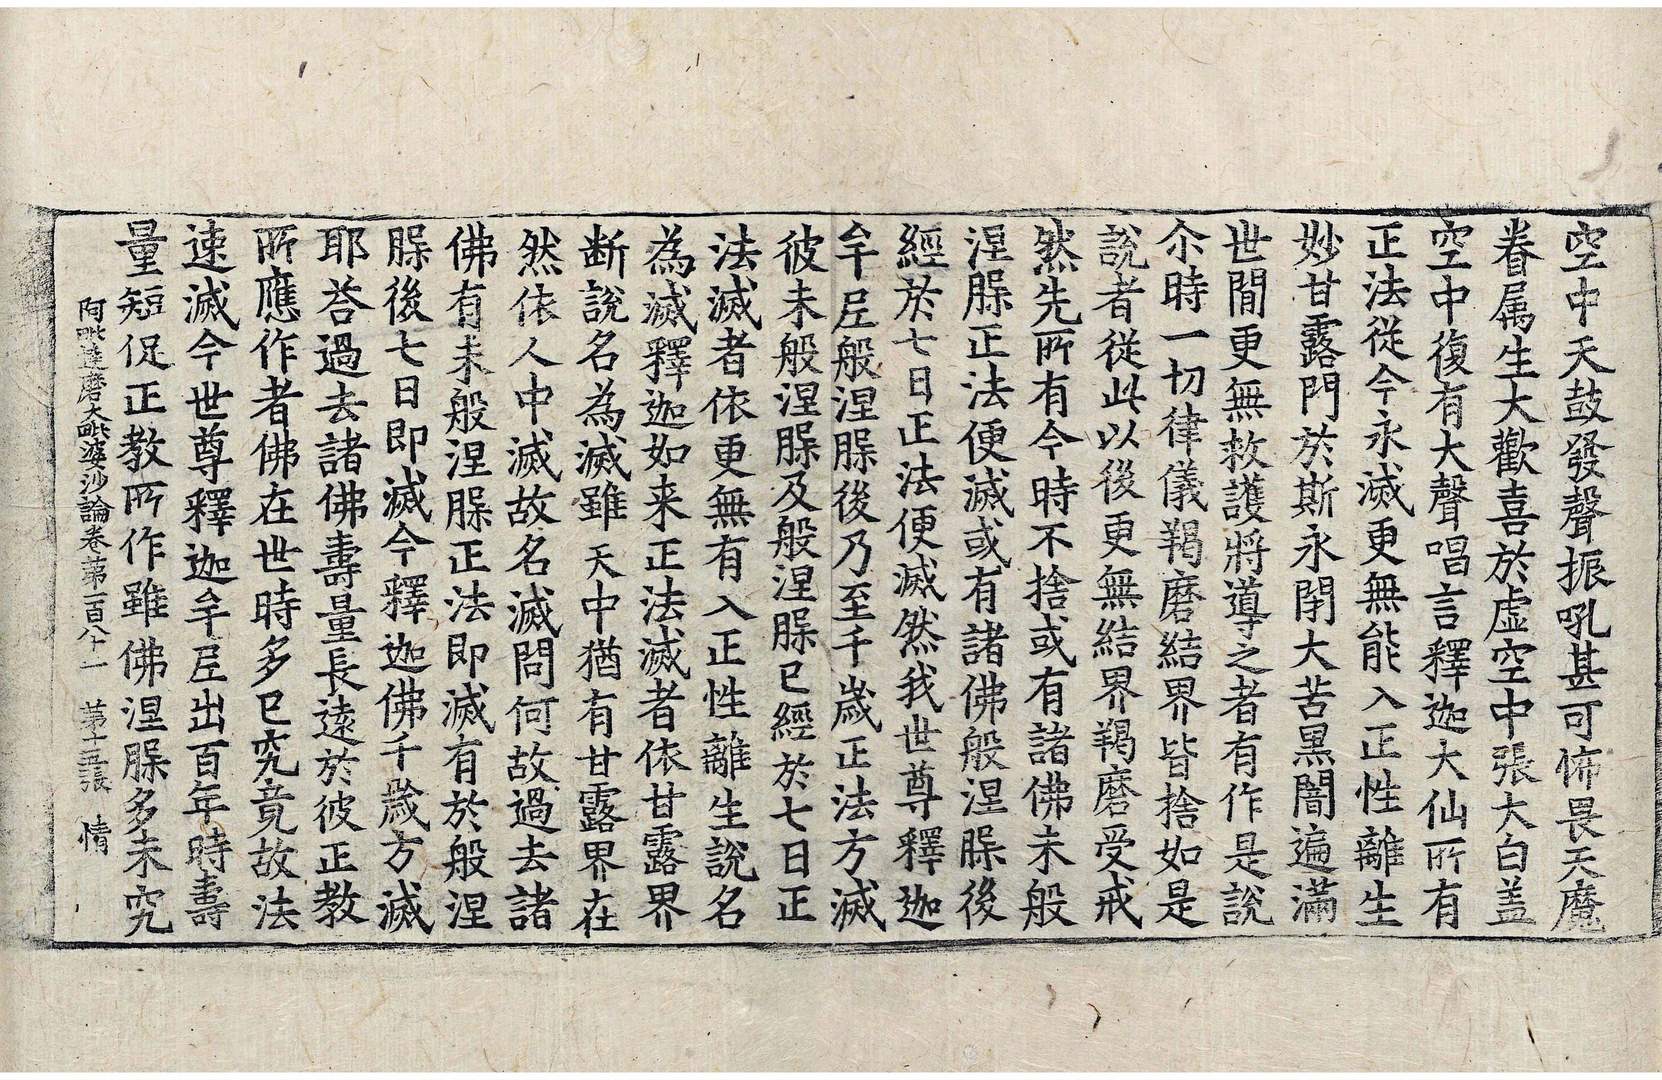 空中天鼓發聲振吼甚可怖畏天魔
眷属生大歡喜於虛空中張大白盖
空中復有大聲唱言釋迦大仙所有
正法從今永滅更無能入正性離生
妙甘露門於斯永閇大苦黑闇遍滿
世閒更無救護將導之者有作是說
尒時一切律儀羯磨結界皆捨如是
說者從此以後更無結界羯磨受戒
然先所有今時不捨或有諸佛未般
涅槃正法便滅或有諸佛般涅槃後
經於七日正法便滅然我世尊釋迦
牟尼般涅槃後乃至千歲正法方滅
彼未般涅槃及般涅槃已經於七日正
法滅者依更無有入正性離生說名
為滅釋迦如来正法滅者依甘露界
断說名為滅雖天中猶有甘露界在
然依人中滅故名滅問何故過去諸
佛有未般涅槃正法即滅有於般涅
槃後七日即滅今釋迦佛千歲方滅
耶荅過去諸佛壽量長遠於彼正教
所應作者佛在世時多已究竟故法
速滅今世尊釋迦牟尼出百年時壽
量短促正教所作雖佛涅槃多未究
阿毗達磨大毗婆沙論卷第一百八十一　第十五張　情